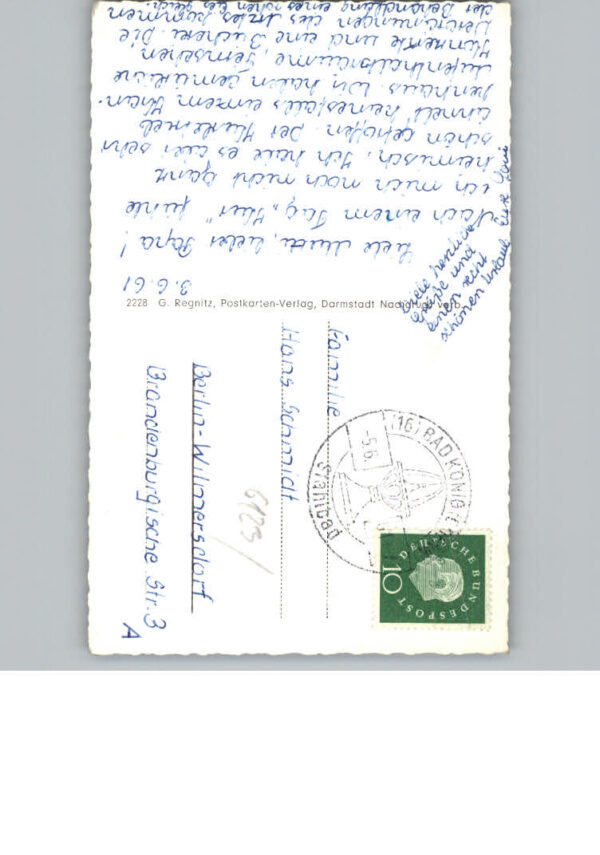 3.6.61
Liebe Mutti, lieber Papa!
Nach einem Tag „Kur“ fühle
ich mich noch nicht ganz
heimisch. Ich habe es aber sehr
schön getroffen. Der Kurbetrieb
ähnelt keinesfalls einem Kran-
kenhaus. Wir haben gemütliche
Aufenthaltsräume, Fernsehen
und eine Bücherei. Die
des Arztes kommen
der Behandlung eines
Viele herzliche
Grüße und
einen recht
schönen Urlaub Eure
2228 G. Regnitz, Postkarten-Verlag, Darmstadt Nachdruck verb.
Familie
Hans Schmidt
Berlin-Wilmersdorf
Brandenburgische Str. 3
A
6123/
(16) BAD KÖNIG
-5.6.
Stahlbad
DEUTSCHE BUNDESPOST
10